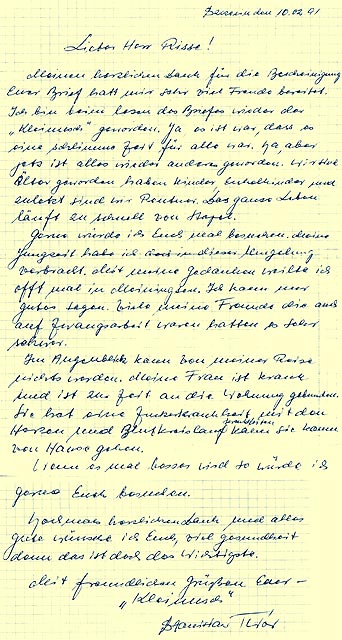 den 10.02.91
Lieber Herr Risse!
Meinen herzlichen Dank für die Bescheinigung
Euer Brief hatt mir sehr viel Freude bereitet.
Ich bin beim lesen des Briefes wieder der
"Kleinusch" geworden. Ja, es ist war, dass es
eine schlimme Zeit für alle war. Ja aber
jetz ist alles wieder anders geworden. wir sind
Älter geworden haben Kinder Enkelkinder und
zuletzt sind wir Rentner. Das ganze Leben
läuft zu schnell von
Gerne würde ich Euch mal besuchen. Meine
Jungzeit habe ich in dieser Umgebung
verbracht. Mit meine Gedanken weilte ich
offt mal in Meiningsen. Ich kann nur
gutes sagen. Viele meine Freunde die auch
auf Zwangsarbeit waren hatten es sehr
schwer.
Im Augenblick kann von meiner Reise
nichts werden. Meine Frau ist krank
und ist zur Zeit an die Wohnung gebunden.
Sie hat eine Zuckerkrankheit, mit den
Herzen und Blutkreislauf kaum sie kann
von Hause gehen.
Wenn es mal besser wird so würde ich
gerne Euch besuchen.
Nochmals herzlichen Dank und alles
gute wünsche ich Euch, viel gesundheit
denn das ist doch das Wichtigste.
Mit freundlichen Grüßen Euer –
"Kleinusch"
Stanislaw